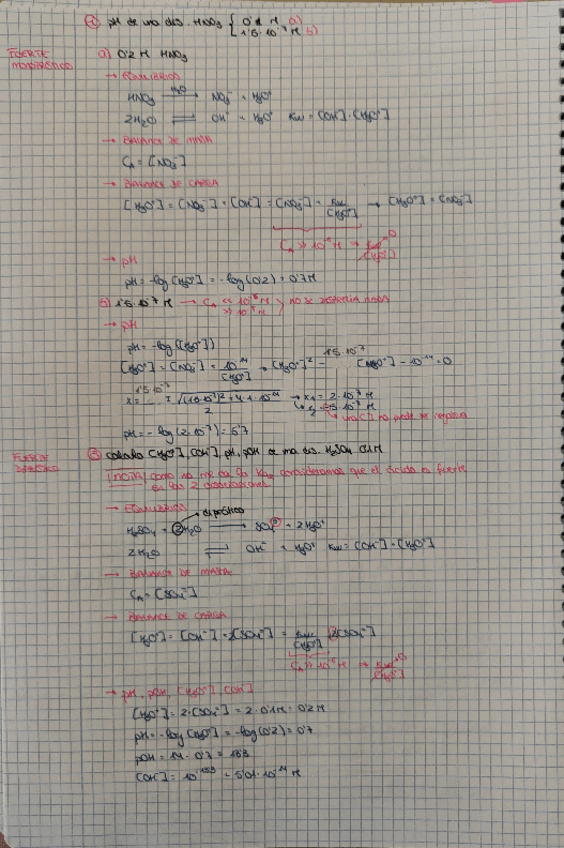 ① pH de una dis. HNO₃ { 0'2 M a)
1'5·10⁻⁷ M b)
FUERTE
MONOPRÓTICO
a) 0'2 M HNO₃
→ EQUILIBRIOS
HNO₃ —H₂O→ NO₃⁻ + H₃O⁺
2H₂O ⇌ OH⁻ + H₃O⁺ Kw = [OH⁻]·[H₃O⁺]
→ BALANCE DE MATERIA
Cₐ = [NO₃⁻]
→ BALANCE DE CARGA
[H₃O⁺] = [NO₃⁻] + [OH⁻] = [NO₃⁻] + Kw/[H₃O⁺] → [H₃O⁺] = [NO₃⁻]
Cₐ >> 10⁻⁶ M → Kw/[H₃O⁺] 0
→ pH
pH = -log [H₃O⁺] = -log (0'2) = 0'7
b) 1'5·10⁻⁷ M → Cₐ << 10⁻⁶ M y no se
>> 10⁻⁸ M
→ pH
pH = -log ([H₃O⁺])
[H₃O⁺] = [NO₃⁻] + 10⁻¹⁴/[H₃O⁺] → [H₃O⁺]² - 1'5·10⁻⁷ [H₃O⁺] - 10⁻¹⁴ = 0
→ x₁ = 2·10⁻⁷ M
pH = -log (2·10⁻⁷) =
FUERTE
DIPRÓTICO
② Calcula [H₃O⁺], [OH⁻], pH, pOH de una dis. H₂SO₄ 0'1 M
NOTA como no me da la Ka₂ consideramos que el ácido es fuerte
en las 2 disociaciones
→ EQUILIBRIOS → diprótico
H₂SO₄ + 2H₂O ⟶ SO₄²⁻ + 2H₃O⁺
2H₂O ⇌ OH⁻ + H₃O⁺ Kw = [OH⁻]·[H₃O⁺]
→ BALANCE DE MATERIA
Cₐ = [SO₄²⁻]
→ BALANCE DE CARGA
[H₃O⁺] = [OH⁻] + 2[SO₄²⁻] = Kw/[H₃O⁺] + 2[SO₄²⁻]
Cₐ >> 10⁻⁶ M → Kw/[H₃O⁺] 0
→ pH, pOH, [H₃O⁺], [OH⁻]
[H₃O⁺] = 2·[SO₄²⁻] = 2·0'1 M = 0'2 M
pH = -log [H₃O⁺] = -log (0'2) = 0'7
pOH = 14 - 0'7 = 13'3
[OH⁻] = 10⁻¹³'³ = 5'01·10⁻¹⁴ M